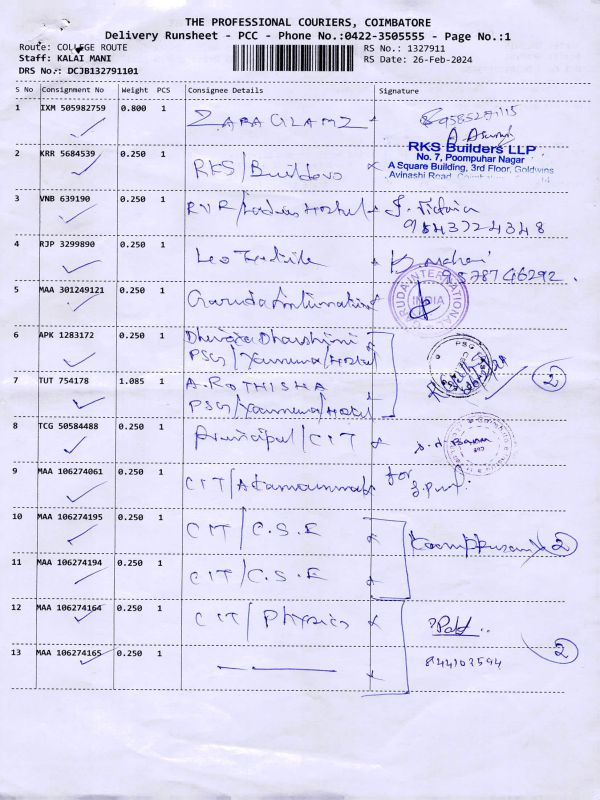 THE PROFESSIONAL COURIERS, COIMBATORE
Delivery Runsheet - PCC - Phone No.:0422-3505555 - Page No.:1
Route: COLLEGE ROUTE
RS No.: 1327911
Staff: KALAI MANI
RS Date: 26-Feb-2024
DRS No.: DCJB132791101
S No Consignment No Weight PCS Consignee Details Signature
1 IXM 505982759 0.800 1 ZARA GLAMZ
2 KRR 5684539 0.250 1 RKS/Builders
RKS Builders LLP
No. 7, Poompuhar Nagar
A Square Building, 3rd Floor, Goldwins
Avinashi Road,
3 VNB 639190 0.250 1 RVR/Ladies Hostel
9843724348
4 RJP 3299890 0.250 1 Leo Textile
9578746292
5 MAA 301249121 0.250 1 Garuda International
GARUDA INTERNATIONAL
INDIA
6 APK 1283172 0.250 1 Dharshini
PSG/Yamuna/Hostel
PSG
2
7 TUT 754178 1.085 1 A. ROTHISHA
PSG/Yamuna/Hostel
8 TCG 50584488 0.250 1 Principal/CIT
9 MAA 106274061 0.250 1 CIT/
for
10 MAA 106274195 0.250 1 CIT/C.S.E
2
11 MAA 106274194 0.250 1 CIT/C.S.E
12 MAA 106274164 0.250 1 CIT/Physics
13 MAA 106274165 0.250 1
2